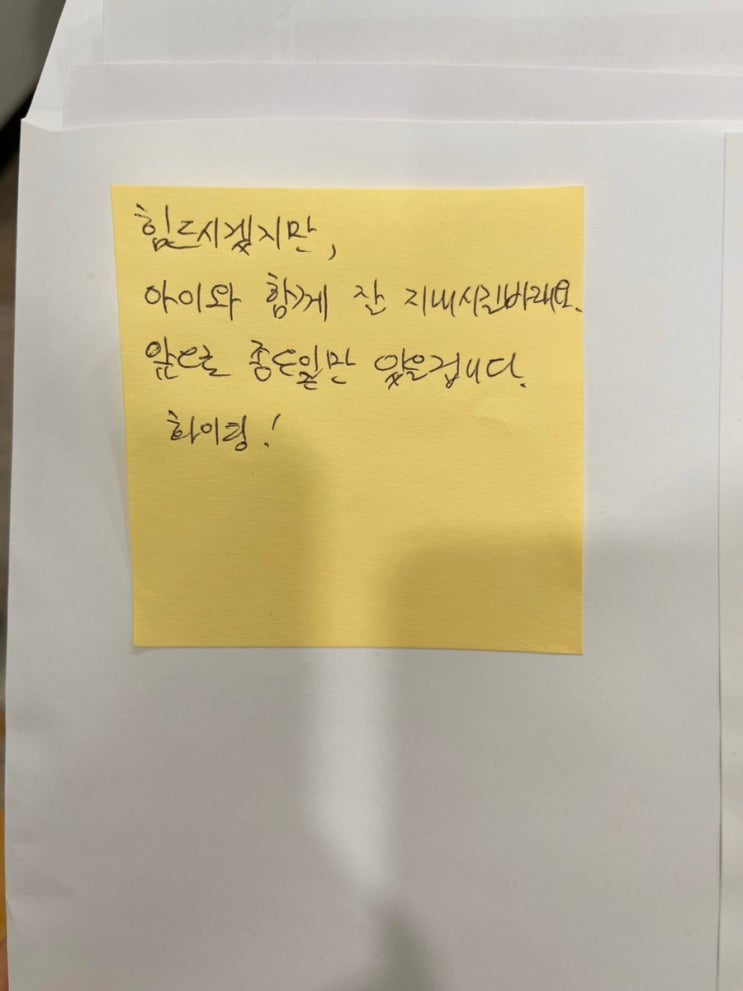 힘드시겠지만,
아이와 함께 잘 지내시길바래요.
앞으로 좋은일만 있을겁니다.
화이팅!